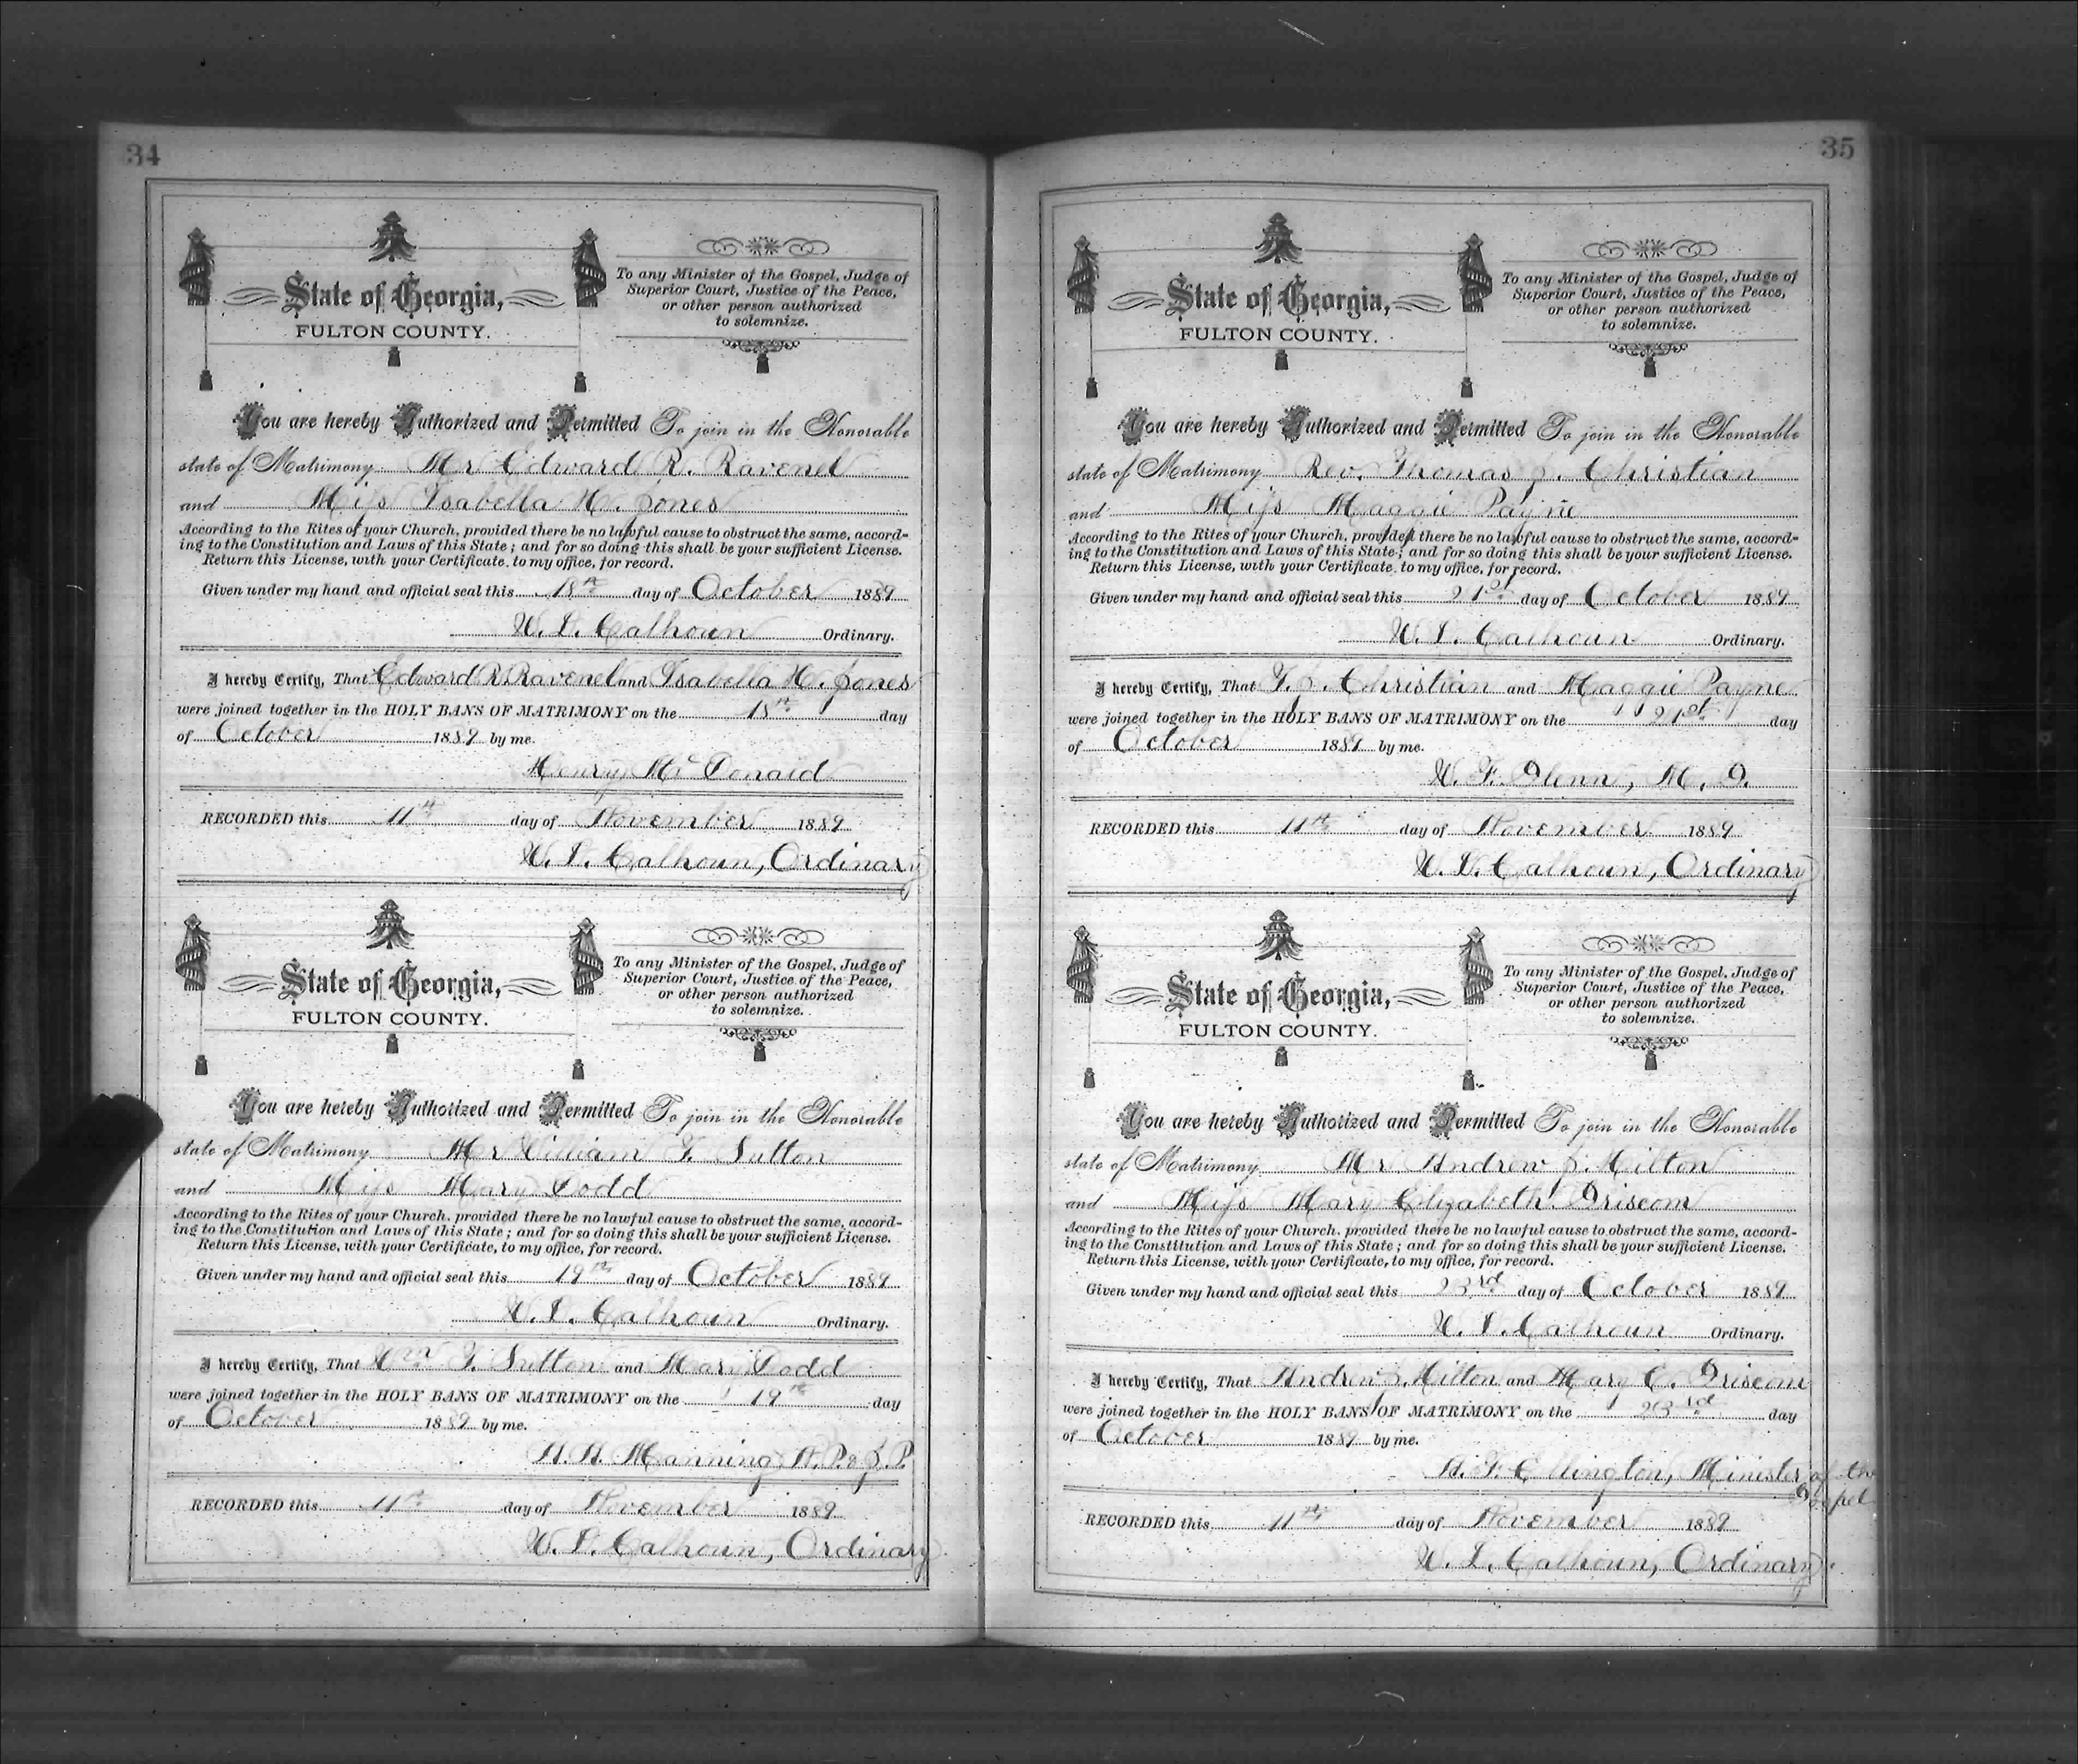 34
State of Georgia,
FULTON COUNTY.
To any Minister of the Gospel, Judge of
Superior Court, Justice of the Peace,
or other person authorized
to solemnize.
You are hereby Authorized and Permitted To join in the Honorable
state of Matrimony Mr Edward R. Ravenel
and Miss Isabella H. Jones
According to the Rites of your Church, provided there be no lawful cause to obstruct the same, accord-
ing to the Constitution and Laws of this State; and for so doing this shall be your sufficient License.
Return this License, with your Certificate, to my office, for record.
Given under my hand and official seal this 18th day of October 1889
W. L. Calhoun Ordinary.
I hereby Certify, That Edward R. Ravenel and Isabella H. Jones
were joined together in the HOLY BANS OF MATRIMONY on the 18th day
of October 1889 by me.
Henry McDonald
RECORDED this 11th day of November 1889
W. L. Calhoun, Ordinary
State of Georgia,
FULTON COUNTY.
To any Minister of the Gospel, Judge of
Superior Court, Justice of the Peace,
or other person authorized
to solemnize.
You are hereby Authorized and Permitted To join in the Honorable
state of Matrimony Mr William T. Sutton
and Miss Mary Dodd
According to the Rites of your Church, provided there be no lawful cause to obstruct the same, accord-
ing to the Constitution and Laws of this State; and for so doing this shall be your sufficient License.
Return this License, with your Certificate, to my office, for record.
Given under my hand and official seal this 19th day of October 1889
W. L. Calhoun Ordinary.
I hereby Certify, That Wm T. Sutton and Mary Dodd
were joined together in the HOLY BANS OF MATRIMONY on the 19th day
of October 1889 by me.
Manning, J. P.
RECORDED this 11th day of November 1889
W. L. Calhoun, Ordinary
35
State of Georgia,
FULTON COUNTY.
To any Minister of the Gospel, Judge of
Superior Court, Justice of the Peace,
or other person authorized
to solemnize.
You are hereby Authorized and Permitted To join in the Honorable
state of Matrimony Rev. Thomas J. Christian
and Miss Maggie Payne
According to the Rites of your Church, provided there be no lawful cause to obstruct the same, accord-
ing to the Constitution and Laws of this State; and for so doing this shall be your sufficient License.
Return this License, with your Certificate, to my office, for record.
Given under my hand and official seal this 21st day of October 1889
W. L. Calhoun Ordinary.
I hereby Certify, That T. J. Christian and Maggie Payne
were joined together in the HOLY BANS OF MATRIMONY on the 21st day
of October 1889 by me.
W. F. Glenn, M. G.
RECORDED this 11th day of November 1889
W. L. Calhoun, Ordinary
State of Georgia,
FULTON COUNTY.
To any Minister of the Gospel, Judge of
Superior Court, Justice of the Peace,
or other person authorized
to solemnize.
You are hereby Authorized and Permitted To join in the Honorable
state of Matrimony Mr Andrew J. Milton
and Miss Mary Elizabeth Griscom
According to the Rites of your Church, provided there be no lawful cause to obstruct the same, accord-
ing to the Constitution and Laws of this State; and for so doing this shall be your sufficient License.
Return this License, with your Certificate, to my office, for record.
Given under my hand and official seal this 23rd day of October 1889
W. L. Calhoun Ordinary.
I hereby Certify, That Andrew J. Milton and Mary E. Griscom
were joined together in the HOLY BANS OF MATRIMONY on the 23rd day
of October 1889 by me.
Ellington, Minister of the
Gospel
RECORDED this 11th day of November 1889
W. L. Calhoun, Ordinary.